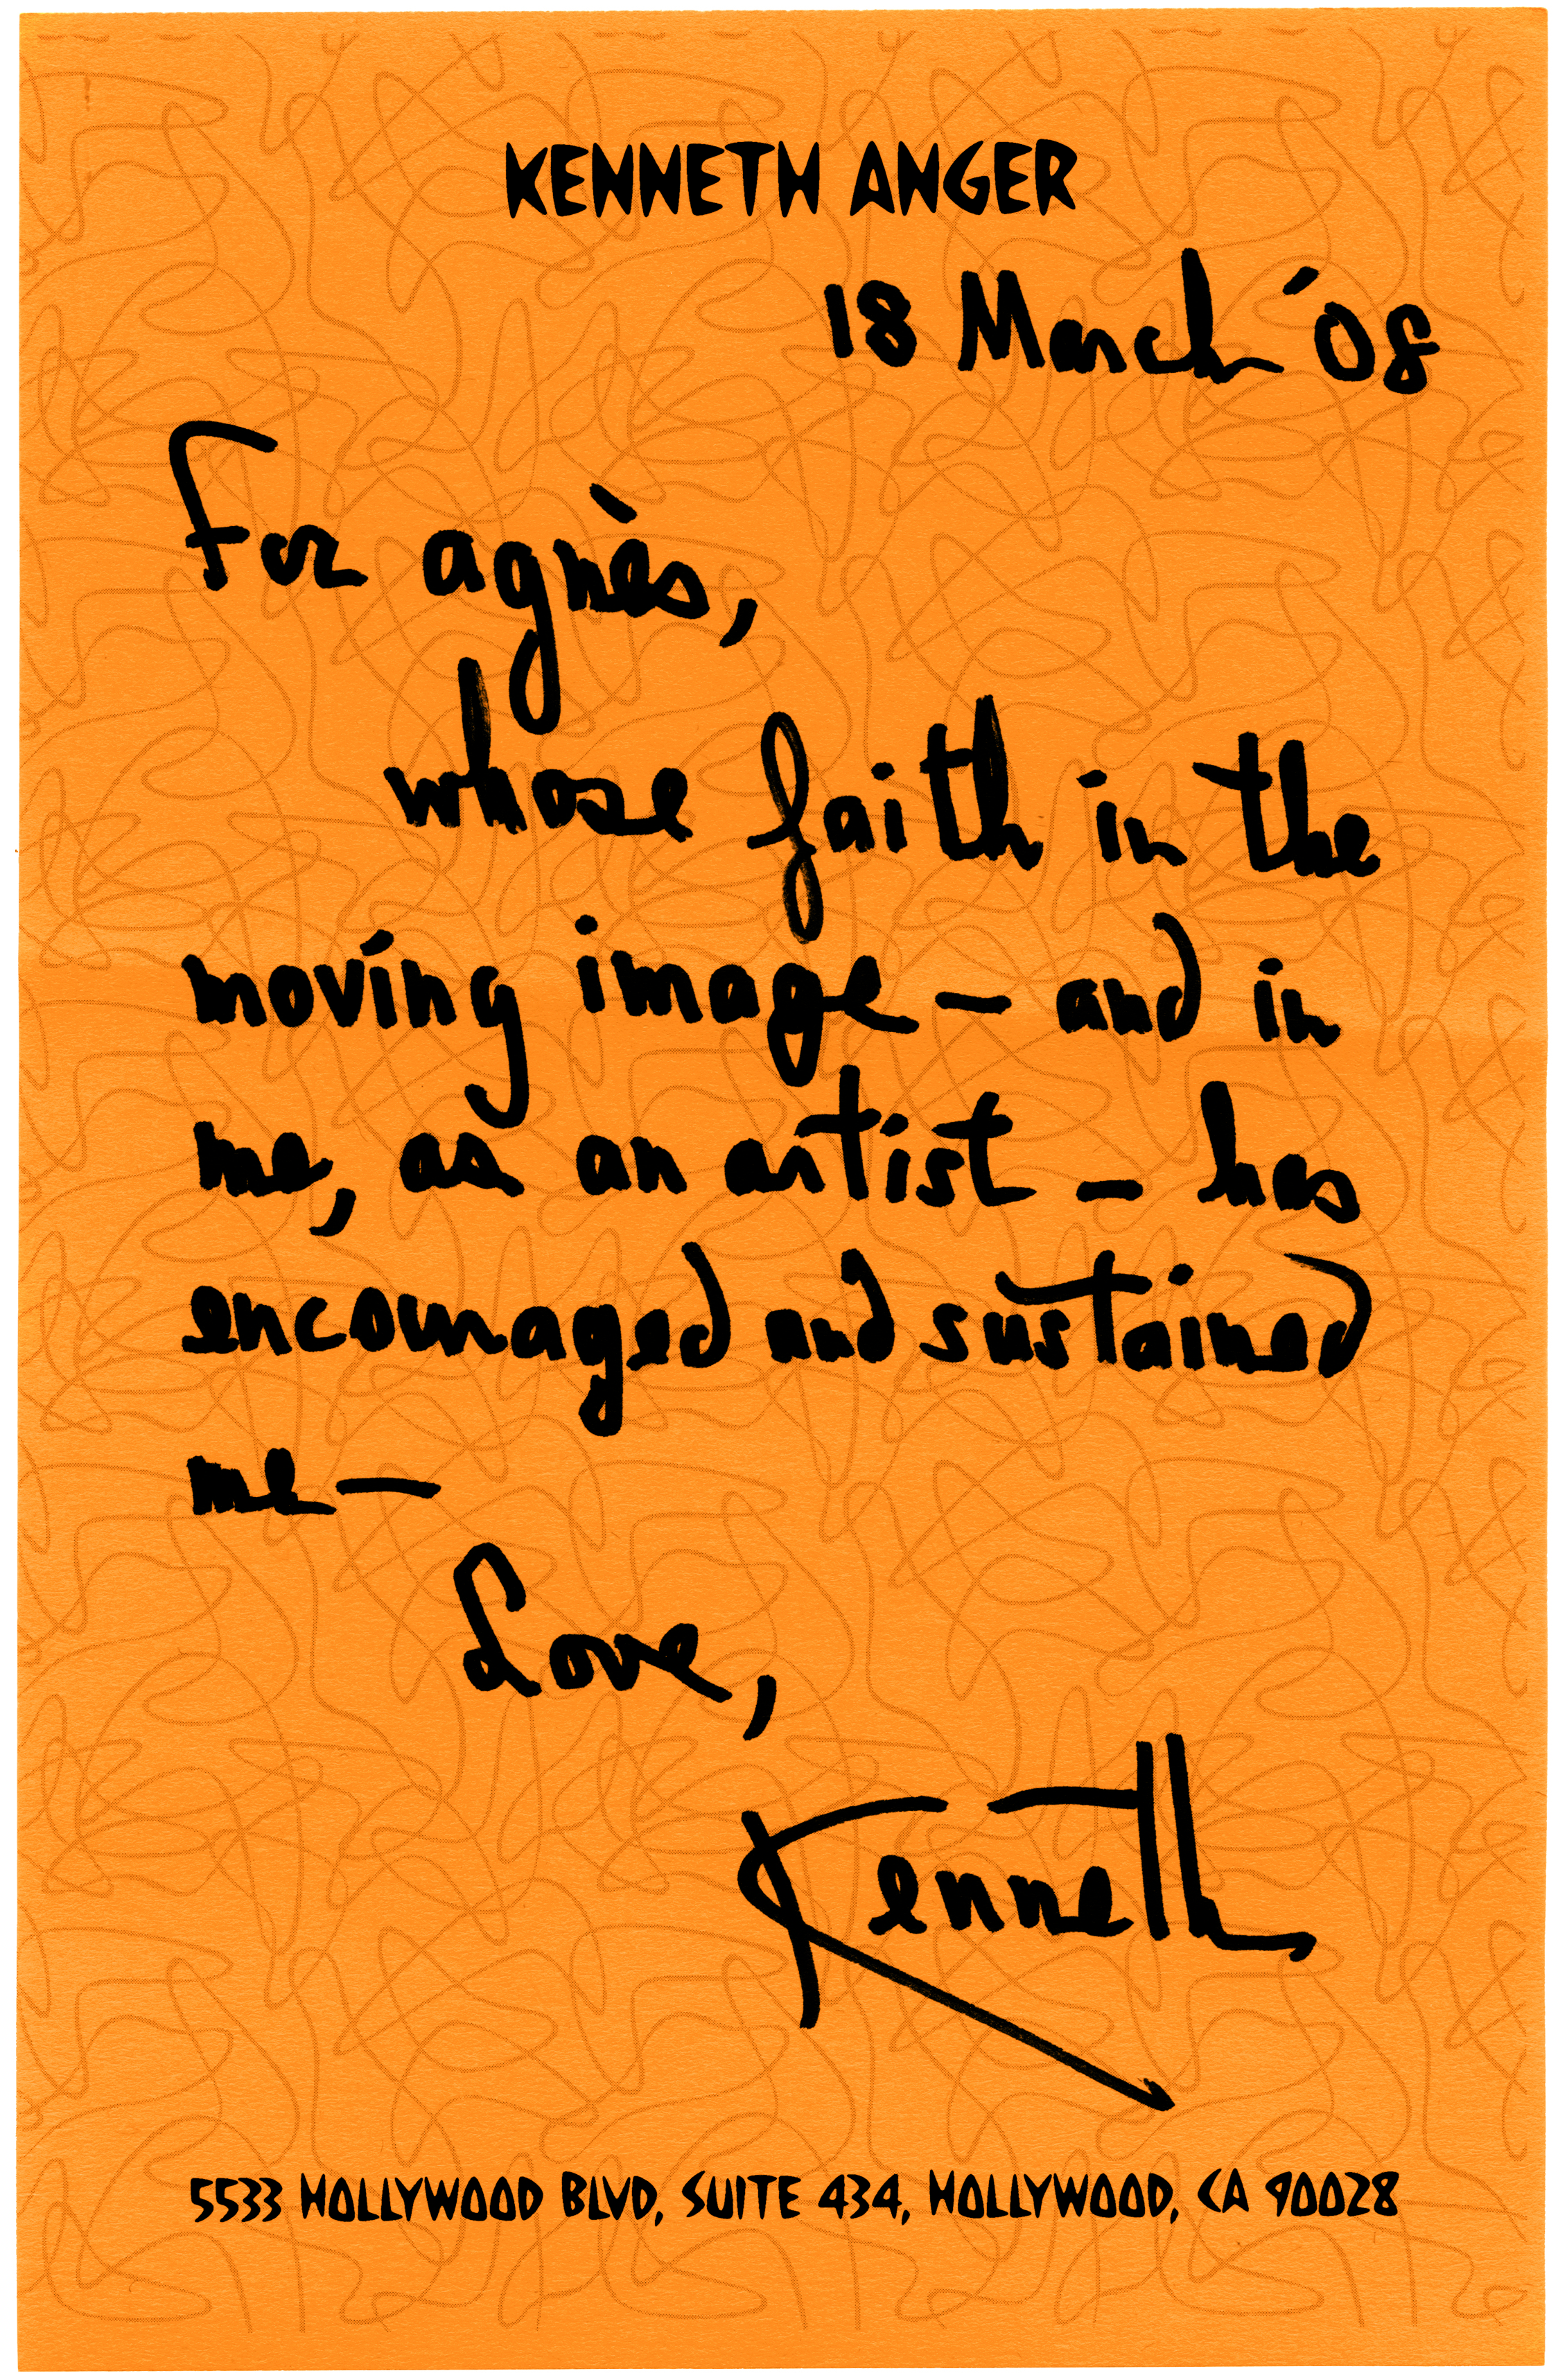 KENNETH ANGER
18 March '08
For agnès,
whose faith in the
moving image – and in
me, as an artist – has
encouraged and sustained
me —
Love,
Kenneth
5533 HOLLYWOOD BLVD, SUITE 434, HOLLYWOOD, CA 90028